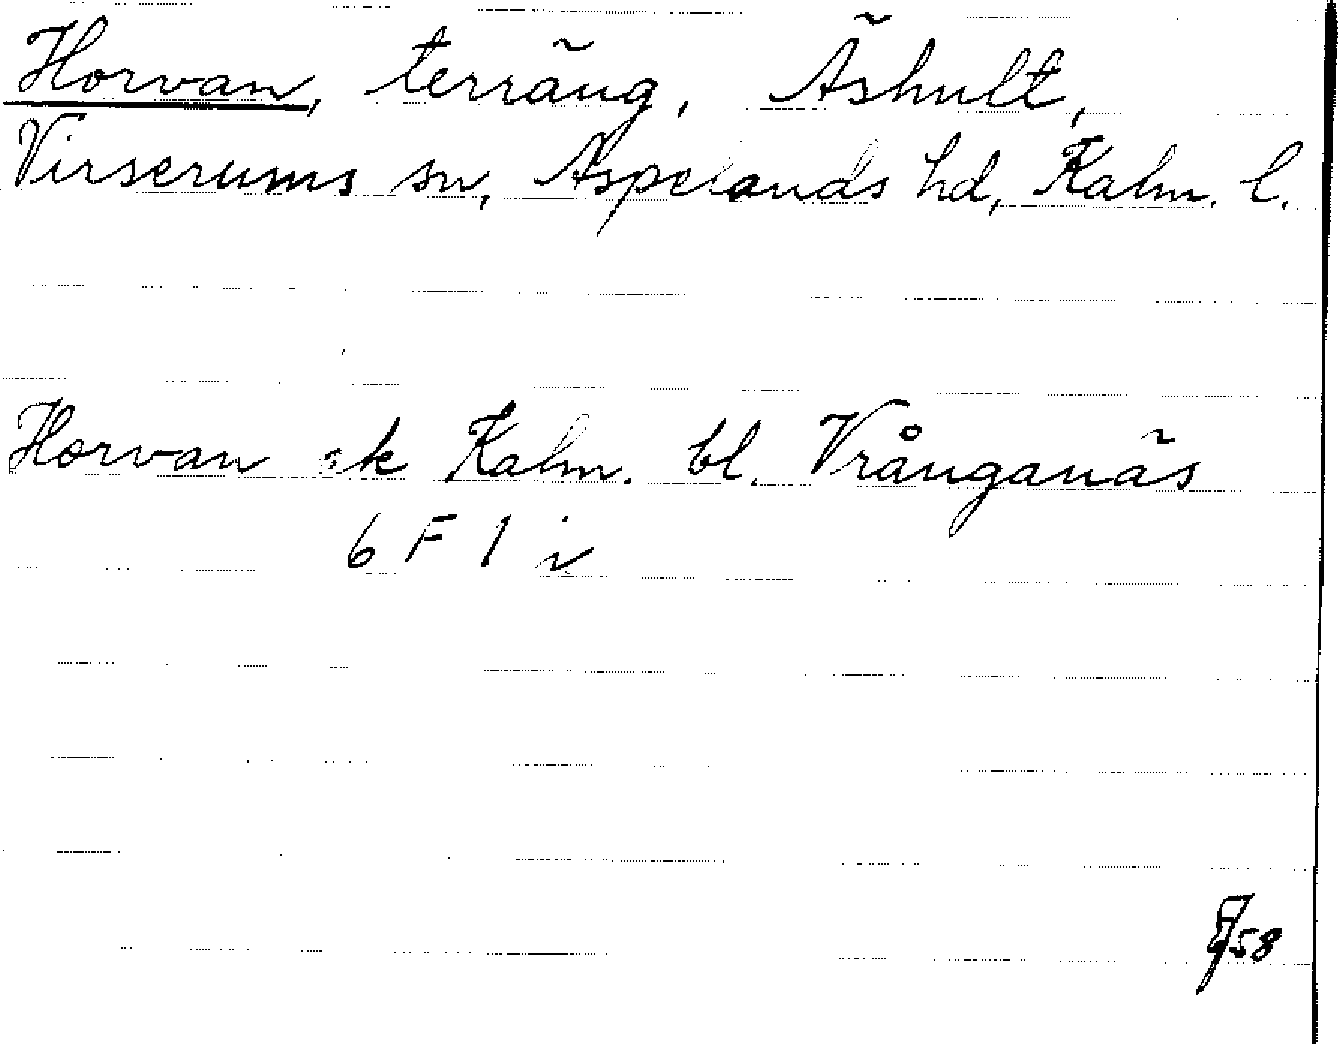 Horvan, terräng, Äshult,
Virserums sn, Aspelands hd, Kalm. l.
Horvan ek Kalm. bl. Vrånganäs
6 F 1 i
58